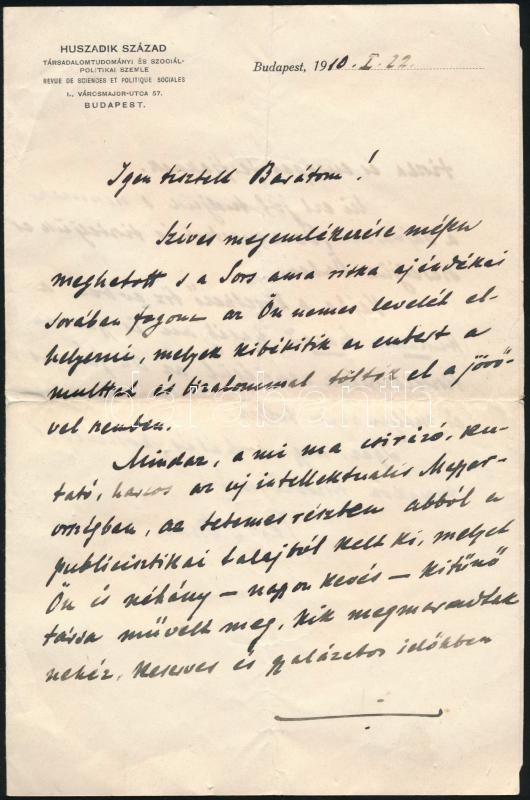 HUSZADIK SZÁZAD
TÁRSADALOMTUDOMÁNYI ÉS SZOCIÁL-
POLITIKAI SZEMLE
REVUE DE SCIENCES ET POLITIQUE SOCIALES
I., VÁRCSMAJOR-UTCA 57.
BUDAPEST.
Budapest, 1910. I. 22.
Igen tisztelt Barátom!
Szíves megemlékezése mélyen
meghatott s a Sors ama ritka ajándékai
sorában fogom az Ön nemes levelét el-
helyezni, melyek kibékítik az embert a
multtal és bizalommal töltök el a jövő-
vel szemben.
Mindaz, a mi ma csirázó, ku-
tató, harcos az új intellektuális Magyar-
országban, az tetemes részben abból a
publicisztikai talajból kelt ki, melyet
Ön és néhány – nagyon kevés – kitűnő
társa művelt meg, kik megmaradtak
nehéz, keserves és gyalázatos időkben
darabanth